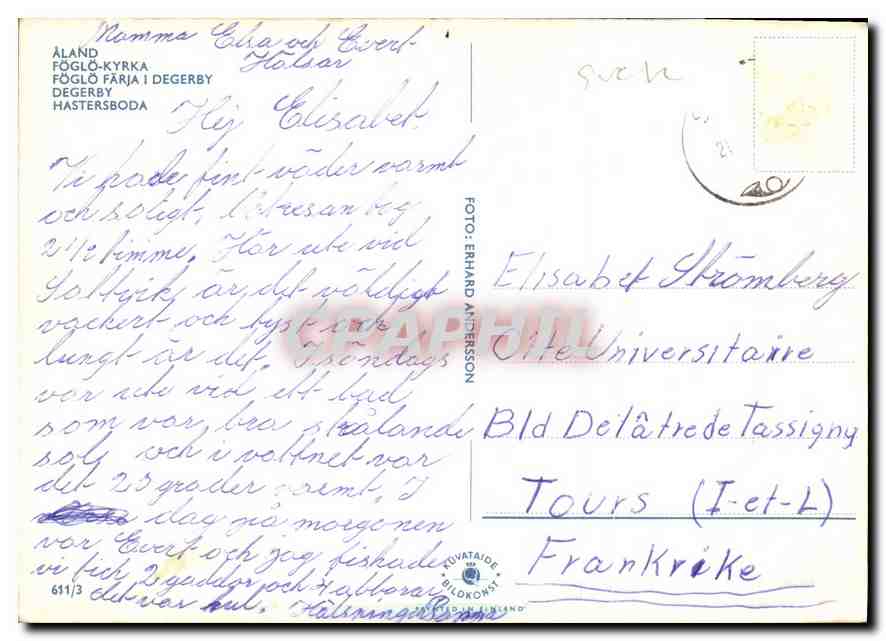 Mamma Elsa och Evert
Hälsar
ÅLAND
FÖGLÖ-KYRKA
FÖGLÖ FÄRJA I DEGERBY
DEGERBY
HASTERSBODA
Hej Elisabet.
Vi hade fint väder varmt
och soligt. Båtresan tog
2 1/2 timme. Här ute vid
Saltvik är det väldigt
vackert och tyst och
lungt är det. I söndags
var ute vid ett bad
som var bra strålande
sol och i vattnet var
det 23 grader varmt. I
dag på morgonen
var Evert och jag fiskade
vi fick 2 gäddor och 4 abborar
det var kul. Hälsningar
611/3
FOTO: ERHARD ANDERSSON
CPAPHIL
KUVATAIDE
BILDKONST
PRINTED IN FINLAND
21
Elisabet Strömberg
Cite Universitaire
Bld Delâtre de Tassigny
Tours (I-et-L)
Frankrike